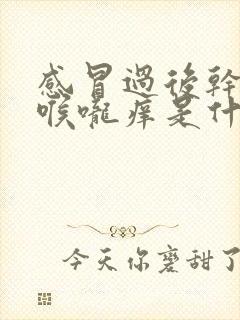 感冒過後幹
喉嚨痒是什
今天你磨甜了